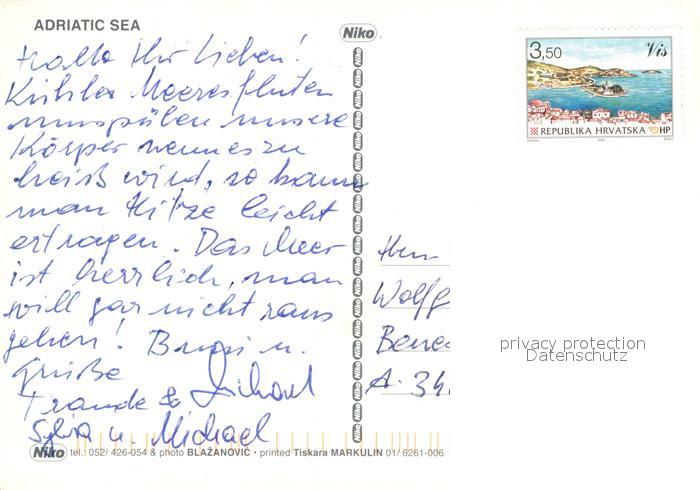 ADRIATIC SEA
Niko
Hallo Ihr Lieben!
Kühle Meeresfluten
umspülen unsere
Körper wenn es zu
heiß wird, so kann
man Hitze leicht
ertragen. Das Meer
ist herrlich, man
will gar nicht raus
gehen! Bussi u.
Grüße
Traude & Richard
Sylvia u. Michael
3,50 Vis
REPUBLIKA HRVATSKA HP
Herrn
Wolfg
Bene
A-34
privacy protection
Datenschutz
Niko tel.: 052/ 426-054 & photo BLAŽANOVIĆ • printed Tiskara MARKULIN 01/ 6261-006